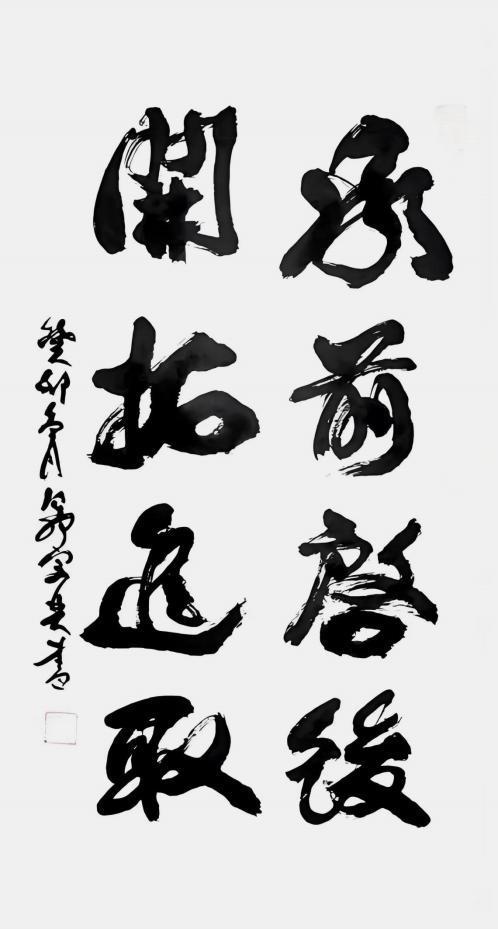 承前啓後
開拓進取
癸卯
書